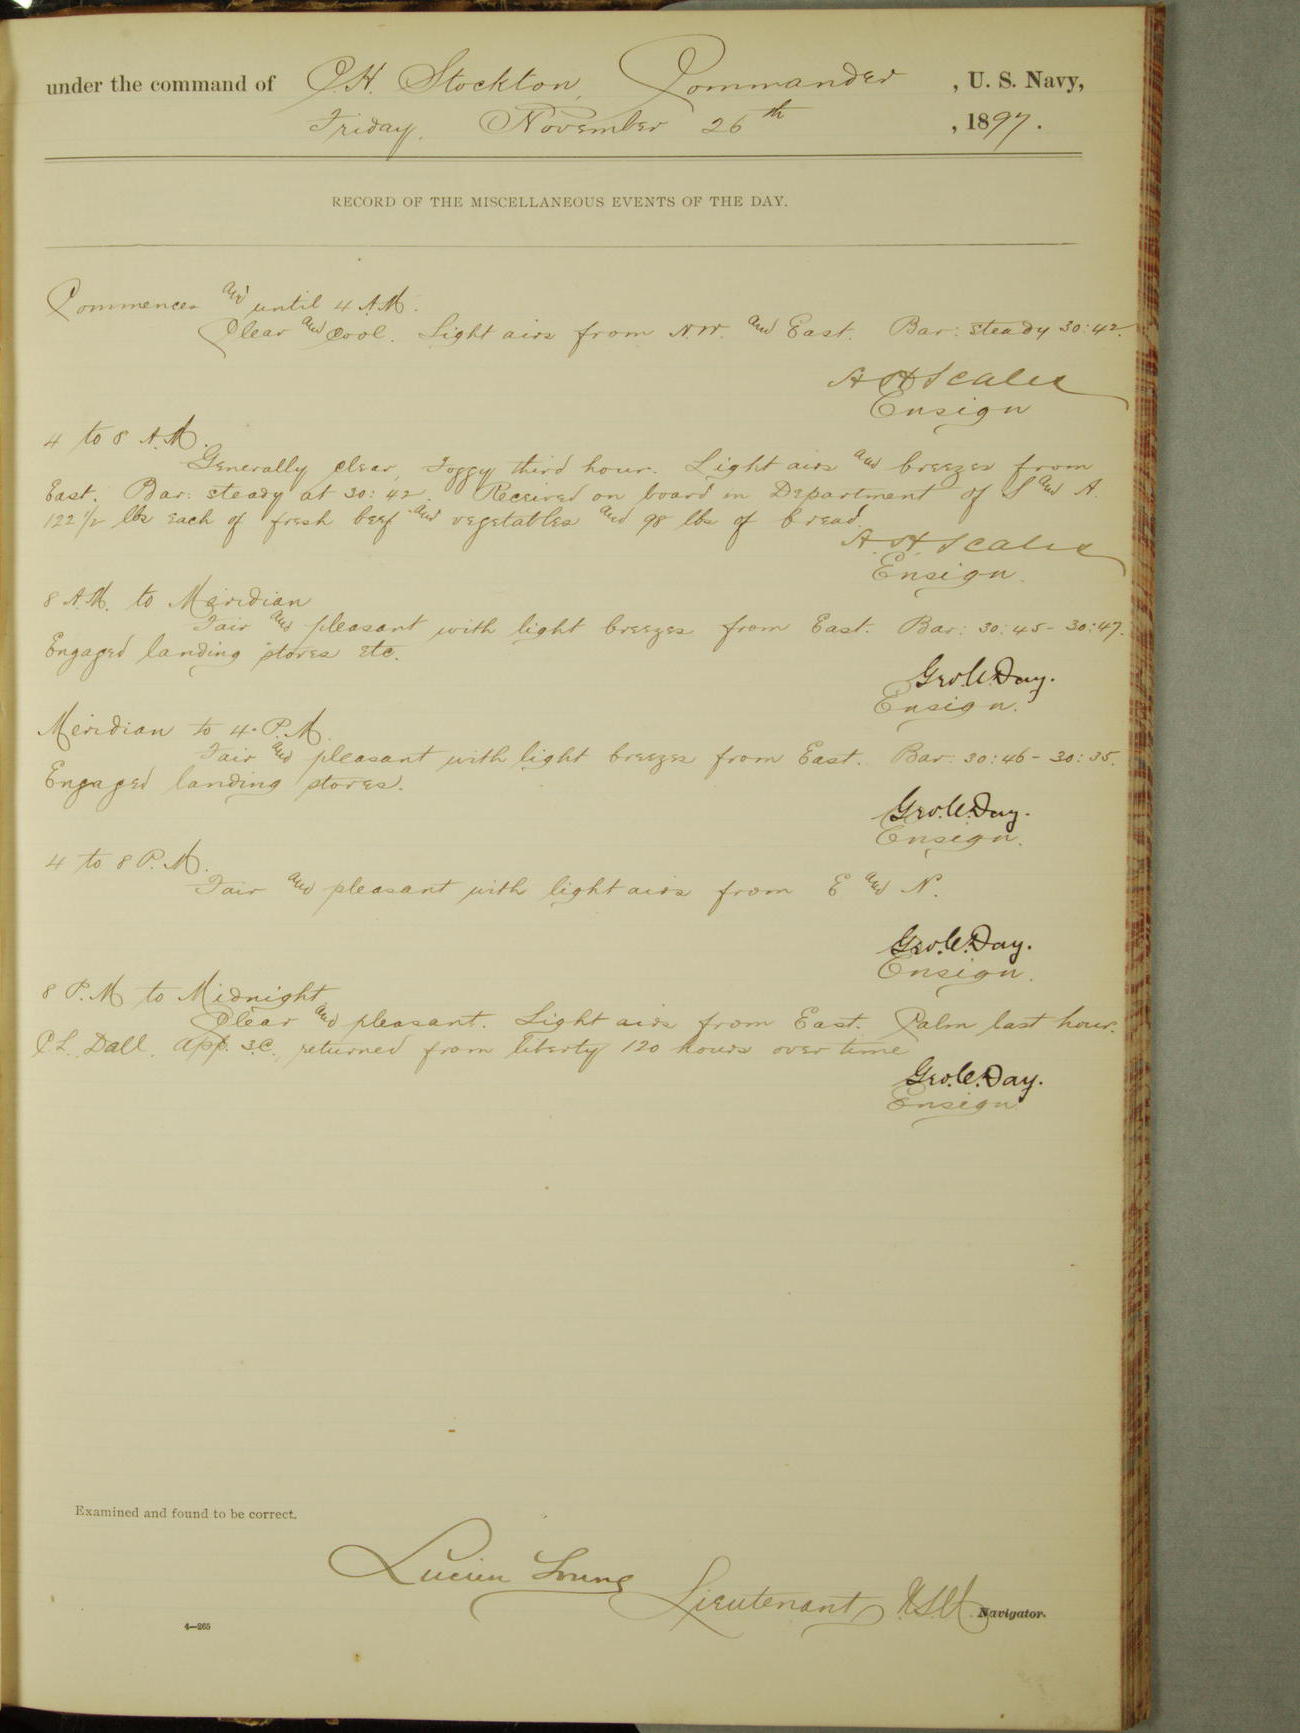 under the command of C.H. Stockton, Commander, U. S. Navy,
Friday, November 26th, 1897.
RECORD OF THE MISCELLANEOUS EVENTS OF THE DAY.
Commences and until 4 A.M.
Clear and cool. Light airs from N.W. and East. Bar: steady 30:42.
A H Scales
Ensign
4 to 8 A.M.
Generally clear, Foggy third hour. Light airs and breezes from
East. Bar: steady at 30:42. Received on board in Department of S and A.
122 1/2 lbs each of fresh beef and vegetables and 98 lbs of bread.
A. H. Scales
Ensign.
8 A.M. to Meridian
Fair and pleasant with light breezes from East. Bar: 30:45- 30:47.
Engaged landing stores etc.
Geo. C. Day.
Ensign.
Meridian to 4 P.M.
Fair and pleasant with light breezes from East. Bar: 30:46- 30:35.
Engaged landing stores.
Geo. C. Day.
Ensign.
4 to 8 P.M.
Fair and pleasant with light airs from E and N.
Geo. C. Day.
Ensign.
8 P.M to Midnight
Clear and pleasant. Light airs from East. Calm last hour.
C L. Dall. App. 3.C. returned from liberty 120 hours over time
Geo. C. Day.
Ensign
Examined and found to be correct.
Lucien Young
Lieutenant U.S.N. Navigator.
4—265